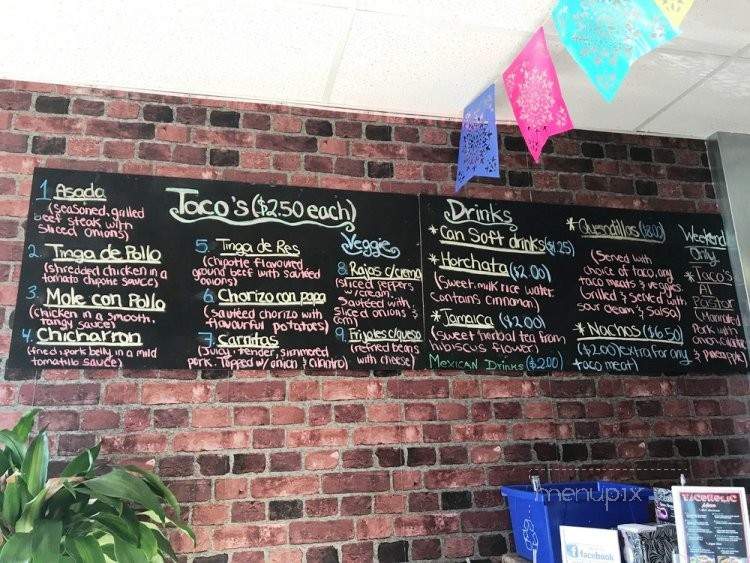 Taco's ($2.50 each)
1. Asada
(seasoned, grilled
beef steak with
sliced onions)
2. Tinga de Pollo
(shredded chicken in a
tomato chipotle sauce)
3. Mole con Pollo
(chicken in a smooth,
tangy sauce)
4. Chicharron
(fried pork belly in a mild
tomatillo sauce)
5. Tinga de Res
(chipotle flavoured
ground beef with sauteed
onions)
6. Chorizo con papa
(sauteed chorizo with
flavourful potatoes)
7. Carnitas
(Juicy, tender, simmered
pork. Topped w/ onion & cilantro)
Veggie
8. Rajas c/crema
(sliced peppers
w/ cream.
Sauteed with
sliced onions &
9. Frijoles c/queso
(refried beans
with cheese)
Drinks
* Can Soft drinks ($1.25)
* Horchata ($2.00)
(Sweet milk rice water
contains cinnamon)
* Jamaica ($2.00)
(Sweet herbal tea from
hibiscus flower)
Mexican Drinks ($2.00)
* Quesadillas ($8.00)
(Served with
choice of taco any
taco meats & veggies
Grilled & served with
sour cream & salsa)
* Nachos ($6.50)
($2.00) extra for any
taco meat)
Weekend
Only
* Taco's
Al
Pastor
(Marinated
Pork with
onion, cilantro
& pineapple)
menupix
facebook
TACOHOLIC